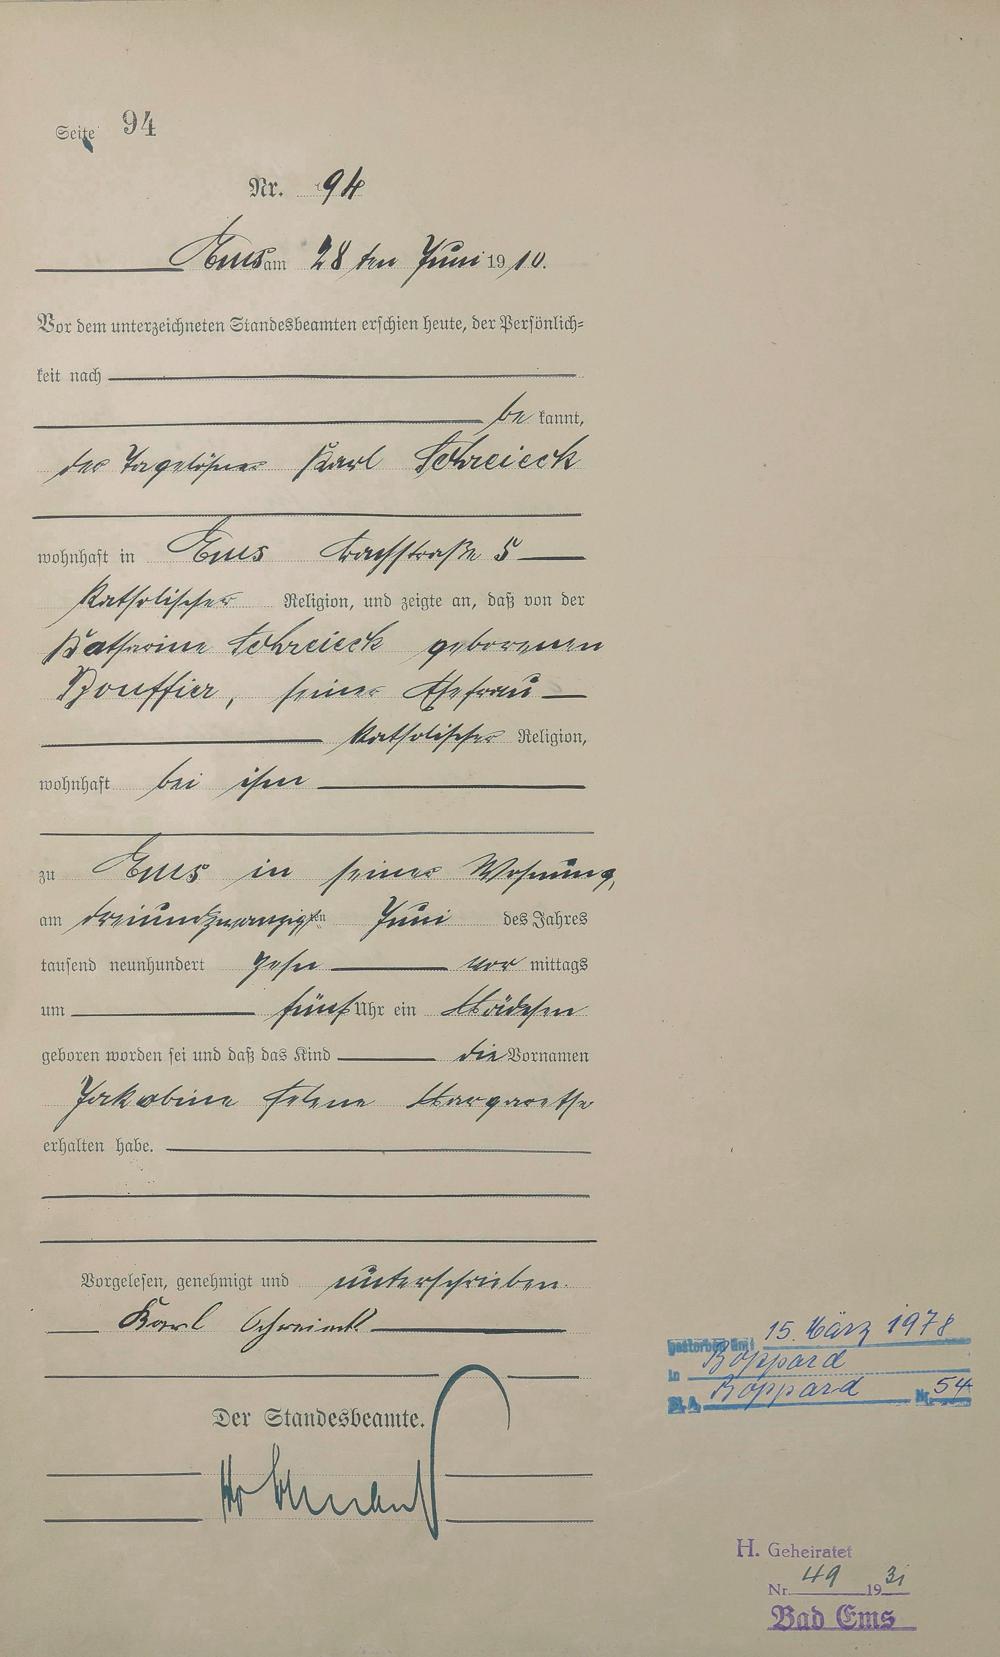 Seite 94
Nr. 94
Ems am 28 ten Juni 1910.
Vor dem unterzeichneten Standesbeamten erschien heute, der Persönlich=
keit nach
be kannt,
der Tagelöhner Karl Schreieck
wohnhaft in Ems Bachstraße 5
katholischer Religion, und zeigte an, daß von der
Katharine Schreieck geborenen
Bouffier, seiner Ehefrau
katholischer Religion,
wohnhaft bei ihm
zu Ems in seiner Wohnung,
am dreiundzwanzigten Juni des Jahres
tausend neunhundert zehn vor mittags
um fünf Uhr ein Mädchen
geboren worden sei und daß das Kind die Vornamen
Jakobine Helene Margarethe
erhalten habe.
Vorgelesen, genehmigt und unterschrieben.
Karl Schreieck
Der Standesbeamte.
gestorben am 15. März 1978
in Boppard
St.A. Boppard Nr. 54
H. Geheiratet
Nr. 49 1931
Bad Ems